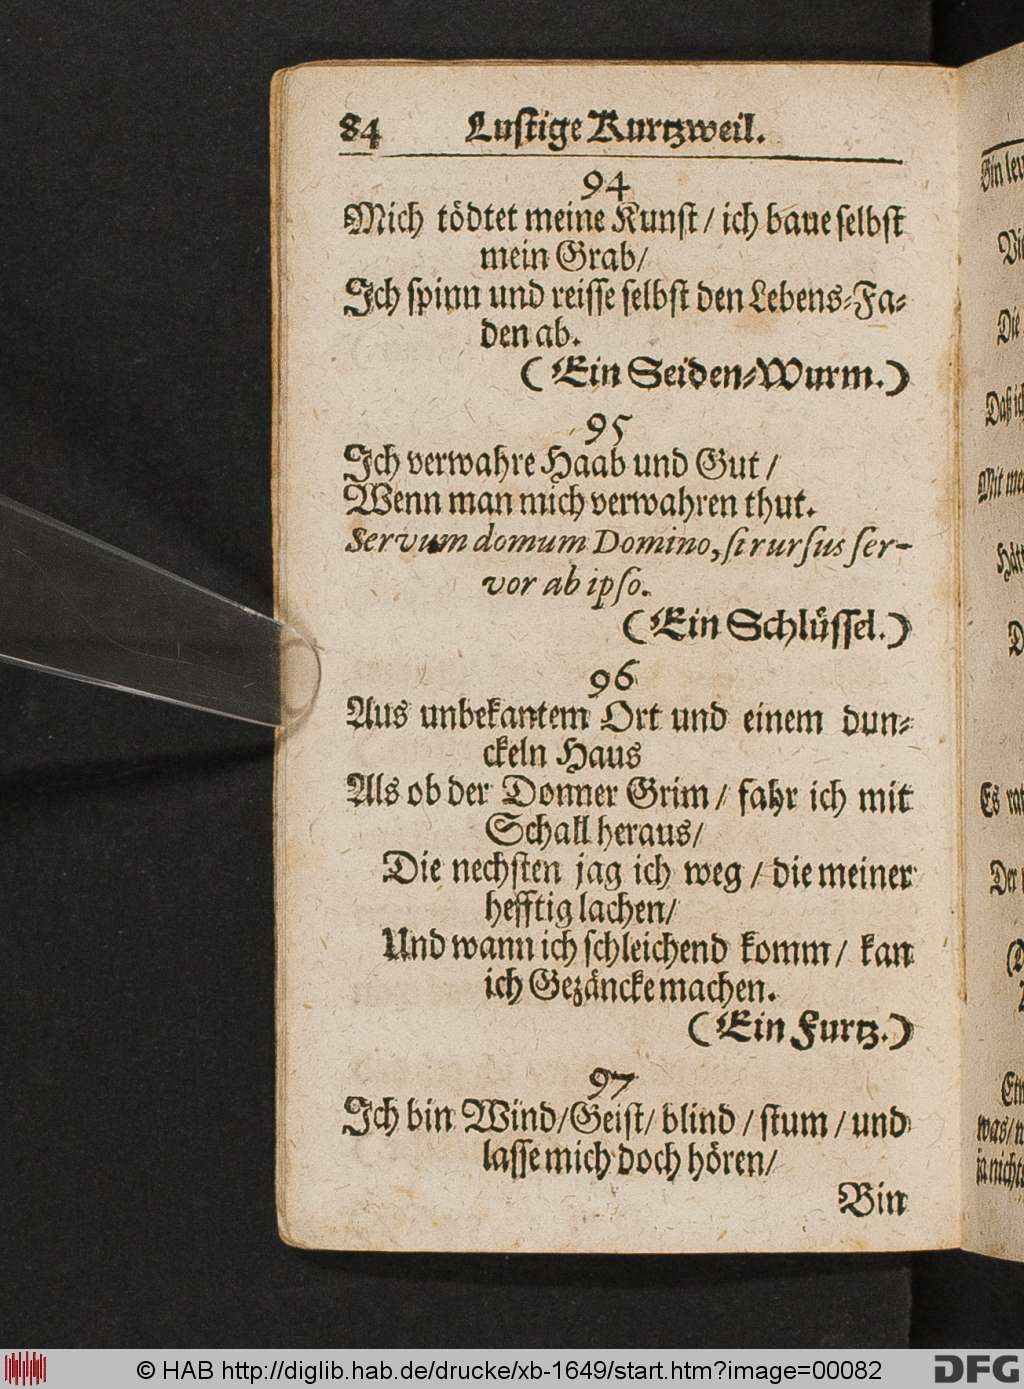 84 Lustige Kurtzweil.
94
Mich tödtet meine Kunst / ich baue selbst
mein Grab /
Ich spinn und reisse selbst den Lebens-Fa-
den ab.
( Ein Seiden-Wurm. )
95
Ich verwahre Haab und Gut /
Wenn man mich verwahren thut.
Servum domum Domino, si rursus ser-
vor ab ipso.
( Ein Schlüssel. )
96
Aus unbekantem Ort und einem dun-
ckeln Haus
Als ob der Donner Grim / fahr ich mit
Schall heraus /
Die nechsten jag ich weg / die meiner
hefftig lachen /
Und wann ich schleichend komm / kan
ich Gezäncke machen.
( Ein Furtz. )
97
Ich bin Wind / Geist / blind / stum / und
lasse mich doch hören /
Bin
Die
Daß ich
Es
Der
© HAB http://diglib.hab.de/drucke/xb-1649/start.htm?image=00082
DFG